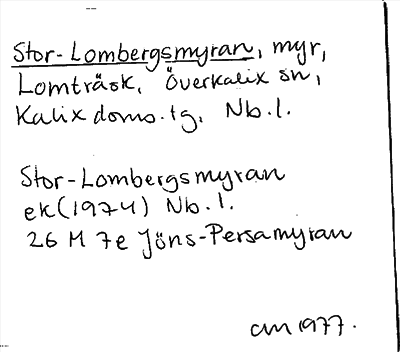 Stor-Lombergsmyran, myr,
Lomträsk, Överkalix sn,
Kalix doms.tg. Nb.l.
Stor-Lombergsmyran
ek (1974) Nb.l.
26 M 7e Jöns-Persamyran
am 1977.